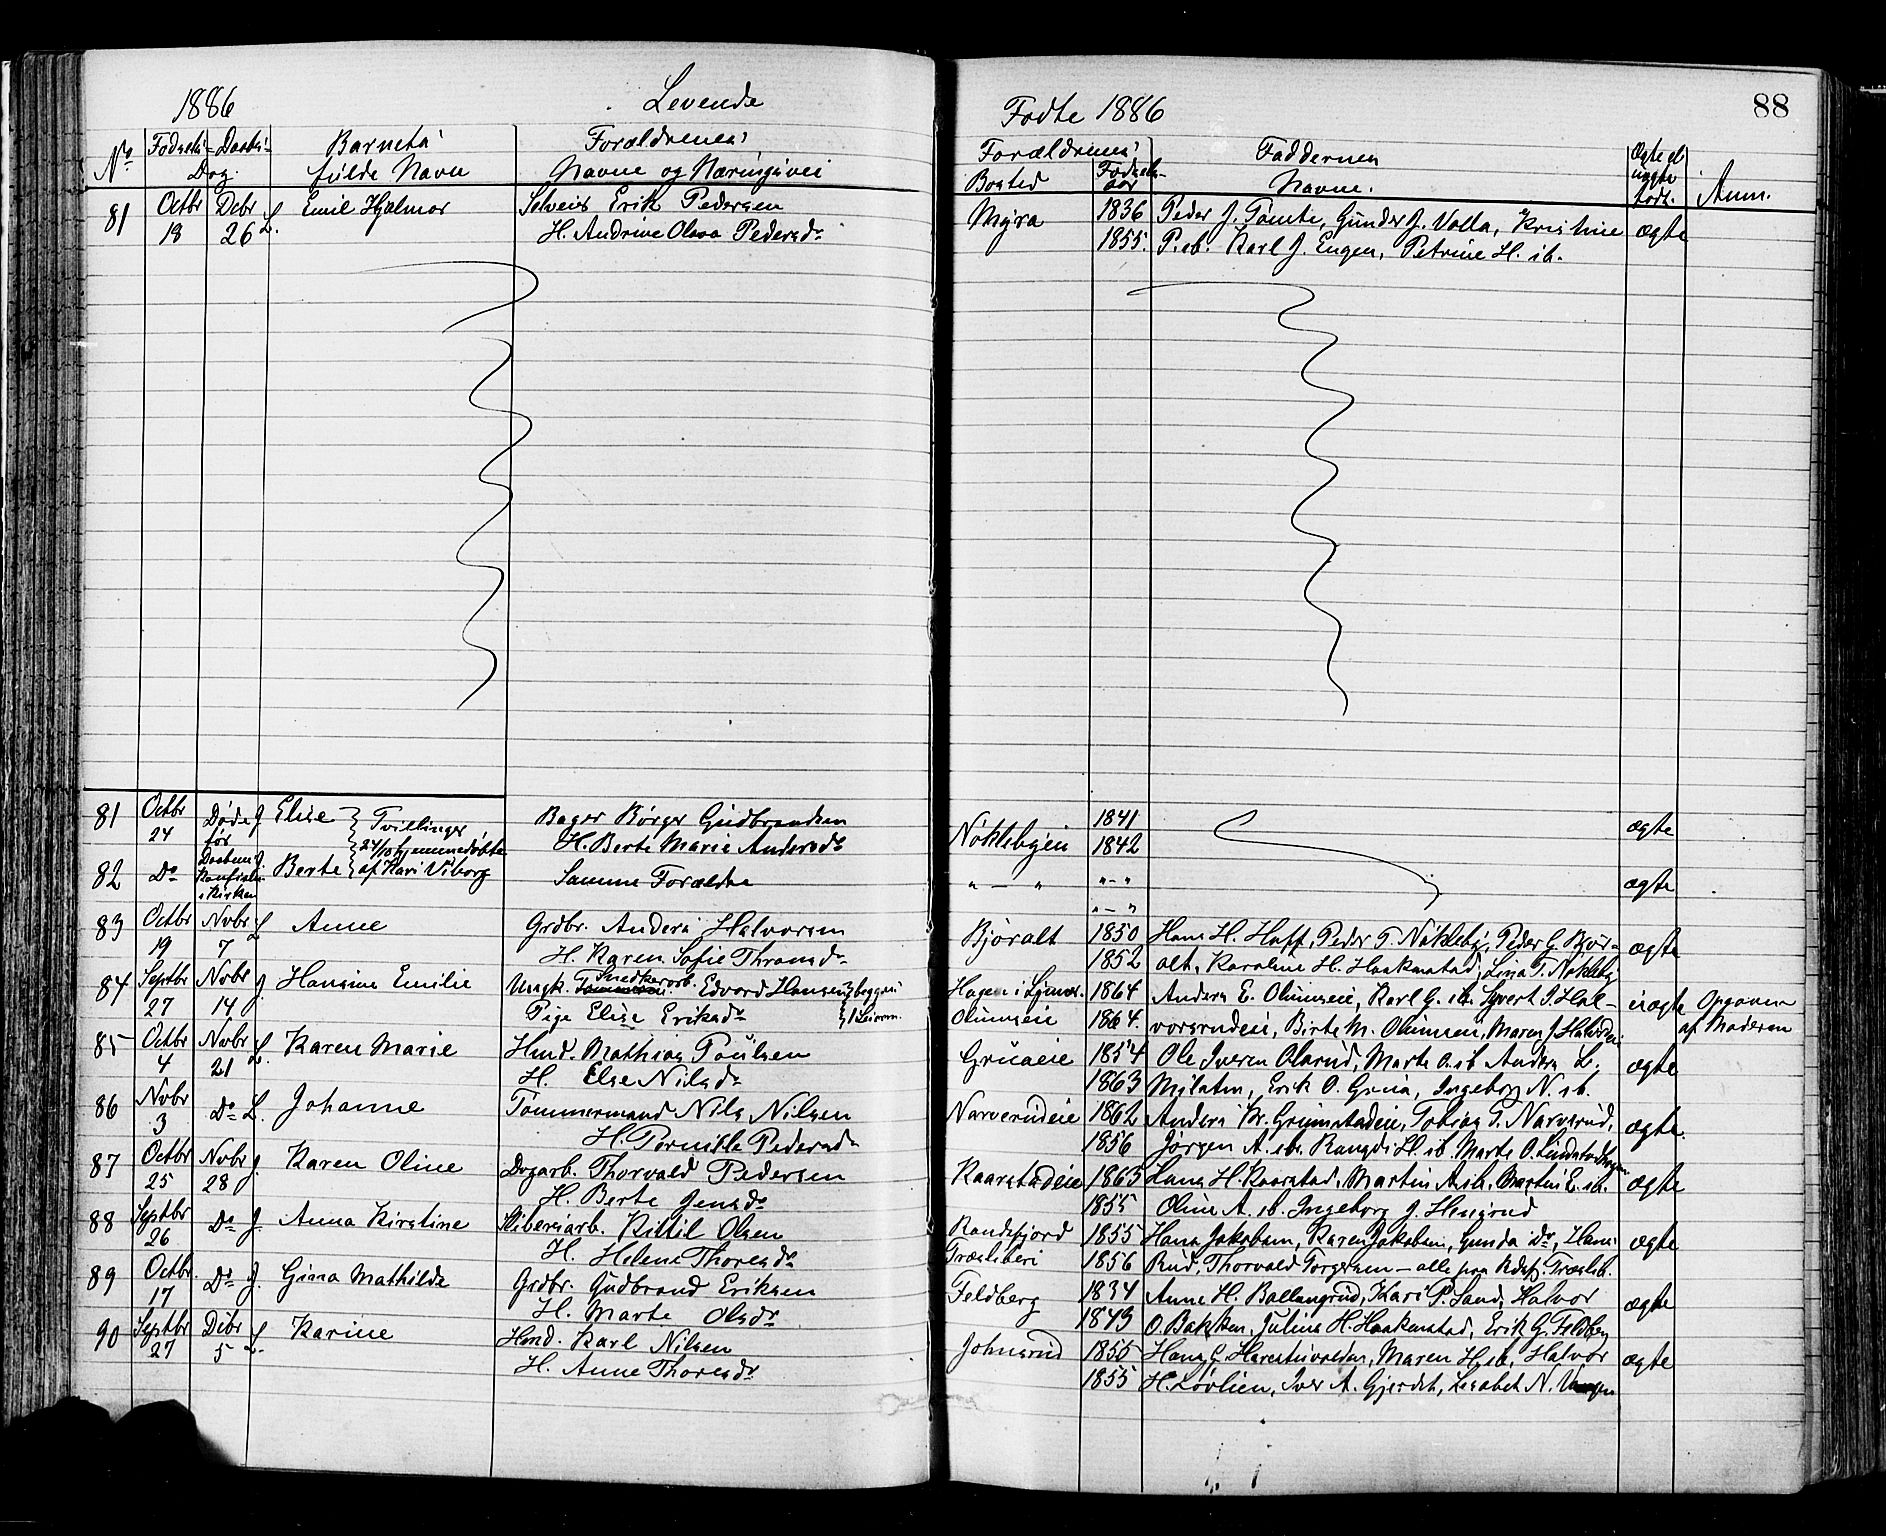 1886 Levende
Fødte 1886 88
No Fødsels- Daabs- Barnets Forældrenes
Dag. fulde Navn Navne og Næringsvei
Forældrenes Faddernes Ægte el
Bosted Fødsels- aar Navne. uægte født. Anm.
81 Octbr Dcbr L. Emil Hjalmar Selveier Erik Pedersen
18 26 H. Andrine Olava Pedersdr
Myra 1836 Peder J. Tømte, Gunder J. Volla, Kristine ægte
1855. P. ib. Karl J. Engen, Petrine H. ib.
81 Octbr Døde J Elise Tvillinger Bager Børger Gudbrandsen
24 før 24/10 hjemmedøbte H. Berte Marie Andersdr
82 Do Daabens J. Berte af Kari Viborg Samme Forældre
i Kirken
Nøklebyeie 1841 ægte
1842
" — " " — " ægte
" — "
83 Octbr Nvbr L Anne Grdbr. Anders Halvorsen
19 7 H. Karen Sofie Thronsdr
84 Septbr Nvbr J. Hansine Emilie Ungk. Snedkerarb. Edvard Hansen begges
27 14 Pige Elise Eriksdr 1 Leierm.
85 Octbr Nvbr L. Karen Marie Hmd. Mathias Poulsen
4 21 H. Else Nilsdr
86 Nvbr Do L. Johanne Tømmermand Nils Nilsen
3 H. Pernille Pedersdr
87 Octbr Nvbr J. Karen Oline Dagarb. Thorvald Pedersen
25 28 H. Berte Jensdr
88 Septbr Do J. Anna Kirstine Sliberiarb. Kittil Olsen
26 H. Helene Thoresdr
89 Octbr Do J. Gina Mathilde Grdbr. Gudbrand Eriksen
17 H. Marte Olsdr
90 Septbr Dcbr L. Karine Hmd. Karl Nilsen
27 5 H. Anne Thoresdr
Bjøralt 1850 Hans H. Hoff, Peder T. Nøkleby, Peder G. Bjør- ægte
1852 alt, Karoline H. Haakenstad, Lina T. Nøkleby
Hagen i 1864 Anders E. Olimseie, Karl G. ib. Syvert I. Hal- uægte Opgaven
Olimseie 1864. vorsrudeie, Birte M. Olimseie, Maren J. af Moderen
Gruaeie 1854 Ole Iversen Olsrud, Marte O. ib. Anders L. ægte
1863 Erik O. Grua, Ingeborg N. ib.
Narverudeie 1862 Anders Kr. Grimstadeie, Tobias T. Narverud, ægte.
1856 Jørgen A. ib. Rangdi H. ib. Marte O.
Kaarstadeie 1863 Lang H. Kaarstad, Martin A. ib. Martin E. ib. ægte
1855 Oline A. ib. Ingeborg J.
Randsfjord 1855 Hans Jakobsen, Karen Jakobsen, Gunda do, Hans ægte
Træsliberi 1856 Rud, Thorvald Torgersen — alle paa Rdsfj. Træslib.
Feldberg 1834 Anne H. Ballangrud, Kari P. Sand, Halvor ægte
1843 O. Bakken, Julius H. Haakenstad, Erik G. Feldberg
Johnsrud 1855 Hans G. Maren H. ib., Halvor ægte
1855 H. Løvlien, Iver A. Gjerdet, Lisabet N.